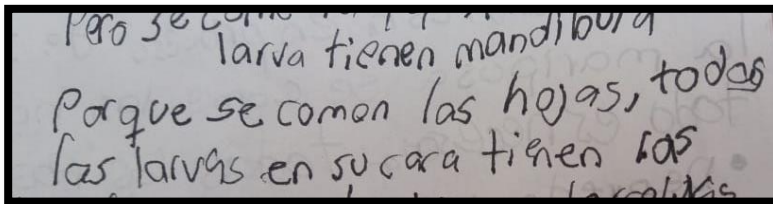 Pero se
larva tienen mandibula
Porque se comen las hojas, todas
las larvas en su cara tienen las